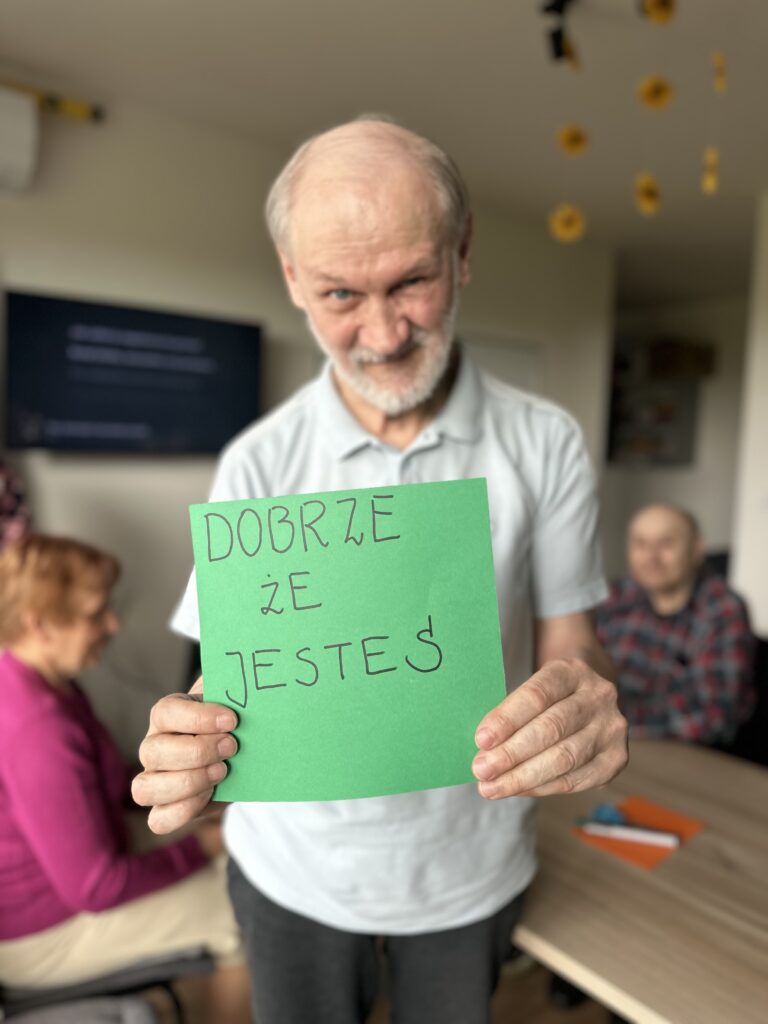 DOBRZE
ŻE
JESTEŚ